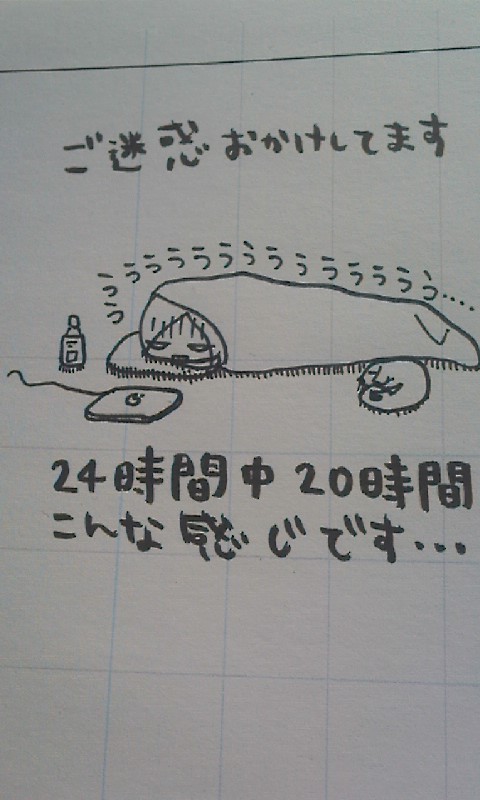 ご迷惑おかけしてます
うううううううううううううううう....
24時間中20時間
こんな感じです...